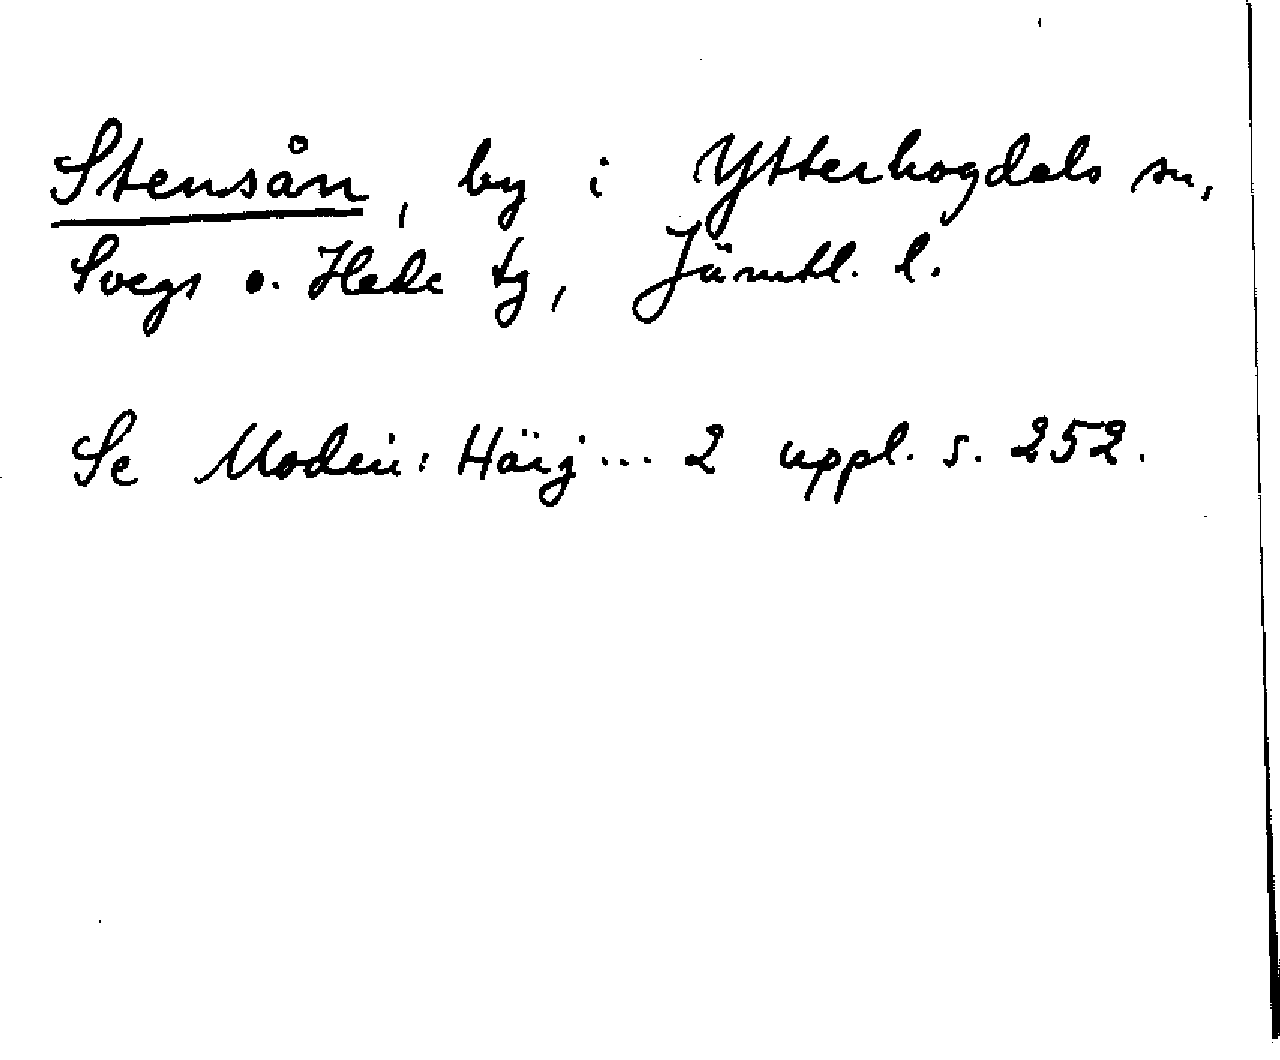 Stensån, by i Ytterhogdals sn,
Svegs o. Hede tg, Jämtl. l.
Se Modin: Härj... 2 uppl. s. 252.